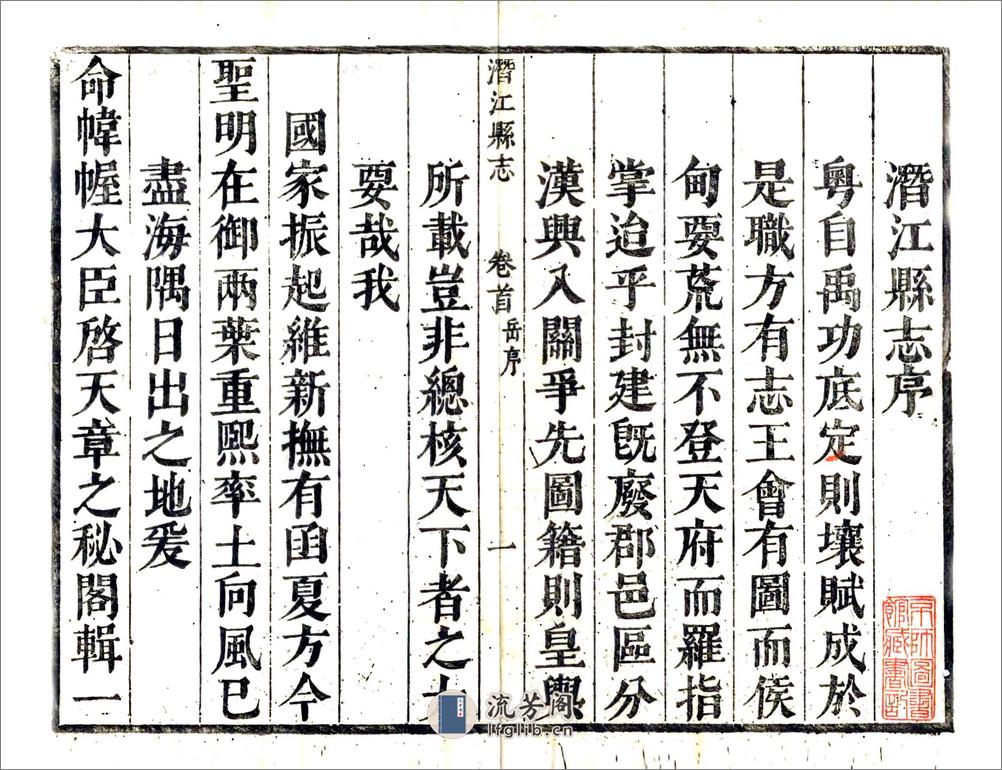 潛江縣志序
粵自禹功底定則壤賦成於
是職方有志王會有圖而侯
甸要荒無不登天府而羅指
掌迨乎封建旣廢郡邑區分
漢興入關爭先圖籍則皇輿
潛江縣志 卷首 岳序 一
所載豈非總核天下者之大
要哉我
國家振起維新撫有函夏方今
聖明在御兩葉重熙率土向風已
盡海隅日出之地爰
命幃幄大臣啓天章之秘閣輯一
京師圖書
館藏書記
流芳阁
lfglib.cn